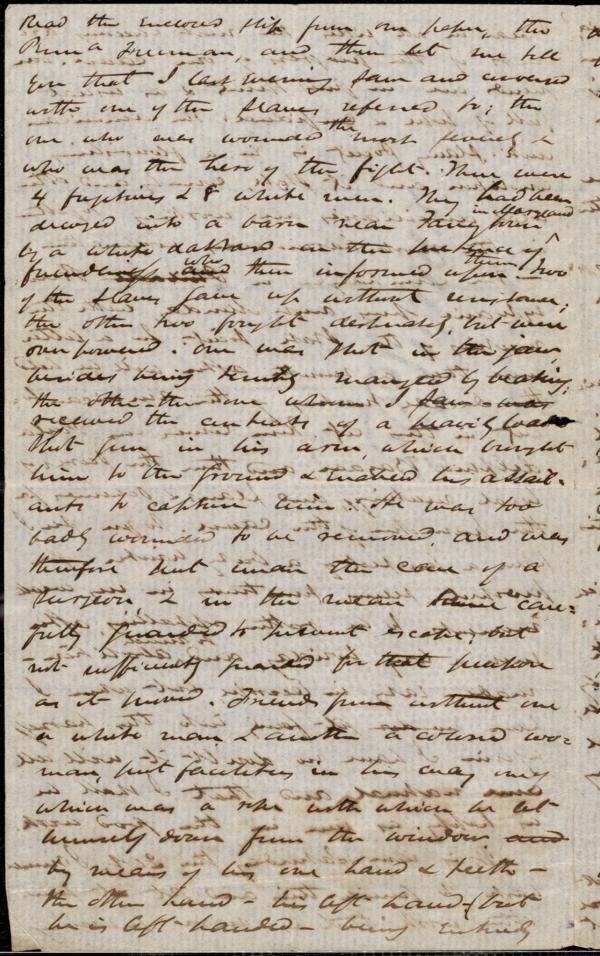 Read the enclosed slip from our paper, the
Penn a Freeman, and then let me tell
you that I last evening saw and conversed
with one of the slaves referred to; the
one who was wounded the most severely &
who was the hero of the fight. There were
4 fugitives & 8 white men. They had been
decoyed into a barn near Taneytown in Maryland
by a white dastard on the pretence of
friendliness who then informed upon them. Two
of the slaves gave up without resistance;
the other two fought desperately, but were
overpowered. One was shot in the jaw,
besides being terribly mangled by beating;
the other - the one whom I saw - was
received the contents of a heavily loaded
shot gun in his arm, which brought
him to the ground & enabled his assail-
ants to capture him. He was too
badly wounded to be removed, and was
therefore put under the care of a
surgeon, & in the mean time care-
fully guarded to prevent escape; but
not sufficiently guarded for that purpose
as it proved. Friends from without one
a white man & another a colored wo=
man, put facilities in his way one of
which was a rope with which he let
himself down from the window and
by means of his one hand & teeth -
the other hand - his left hand - (but
he is left-handed - being entirely